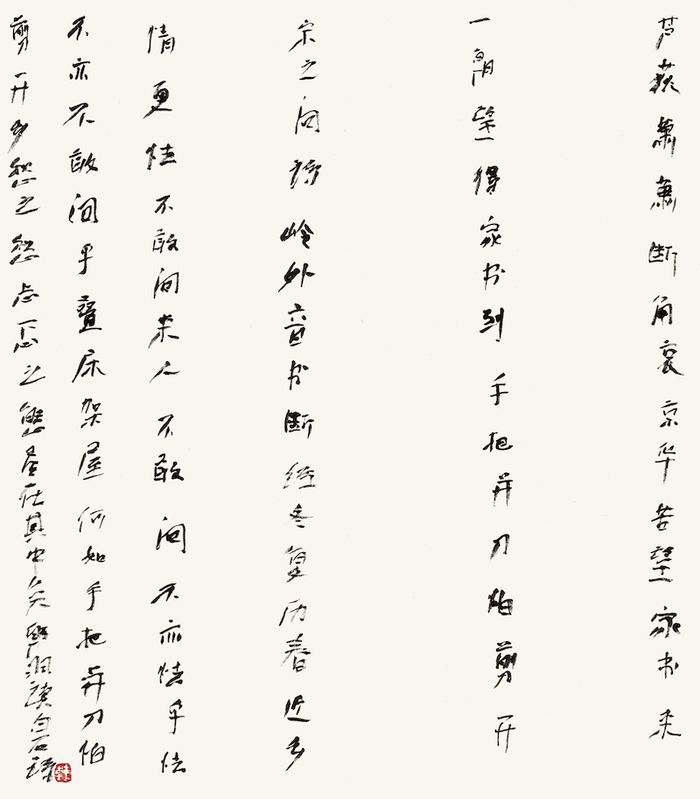 芦荻萧萧断角哀京华苦望家书来
一朝望得家书到手把并刀怕剪开
宋之问诗岭外音书断经冬复历春近乡
情更怯不敢问来人不敢问不亦怯乎怯
不亦不敢问乎叠床架屋何如手把并刀怕
剪开乡愁之忐忑之態在其中矣读白石诗